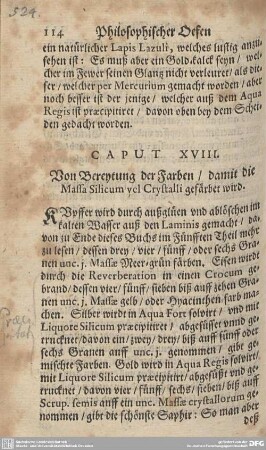 524.
114 Philosophischer Oefen
ein natürlicher Lapis Lazuli, welches lustig anzu-
sehen ist: Es muß aber ein Gold-kalck seyn / wel-
cher im Fewer seinen Glantz nicht verleurer / als die-
ser / welcher per Mercurium gemacht worden / aber
noch besser ist der jenige / welcher auß dem Aqua
Regis ist præcipitiret / davon oben bey dem Schei-
den gedacht worden.
CAPUT XVIII.
Von Bereytung der Farben / damit die
Massa Silicum vel Crystalli gefärbet wird.
KUpffer wird durch außglüen und ablöschen im
kalten Wasser auß den Laminis gemacht / da-
von zu Ende dieses Buchs im Fünfften Theil mehr
zu lesen / dessen drey / vier / fünff / oder sechs Gra-
nen unc. j. Massæ Meer-grün färben. Eisen wirdt
durch die Reverberation in einen Crocum ge-
brand / dessen vier / fünff / sieben biß auff zehen Gra-
nen unc. j. Massæ gelb / oder Hyacinthen farb ma-
chen. Silber wirdt in Aqua Fort solvirt / vnd mit
Liquore Silicum præcipitiret / abgesüsset vnnd ge-
trucknet / davon ein / zwey / drey / biß auff fünff oder
sechs Granen auff unc. j. genommen / gibt ge-
mischte Farben. Gold wird in Aqua Regis solvirt /
mit Liquore Silicum præcipitirt / abgesüßt vnd ge-
trucknet / davon vier / fünff / sechs / sieben / biß auff
Scrup. semis auff ein unc. Massæ crystallorum ge-
nommen / gibt die schönste Saphir: So man aber
deß